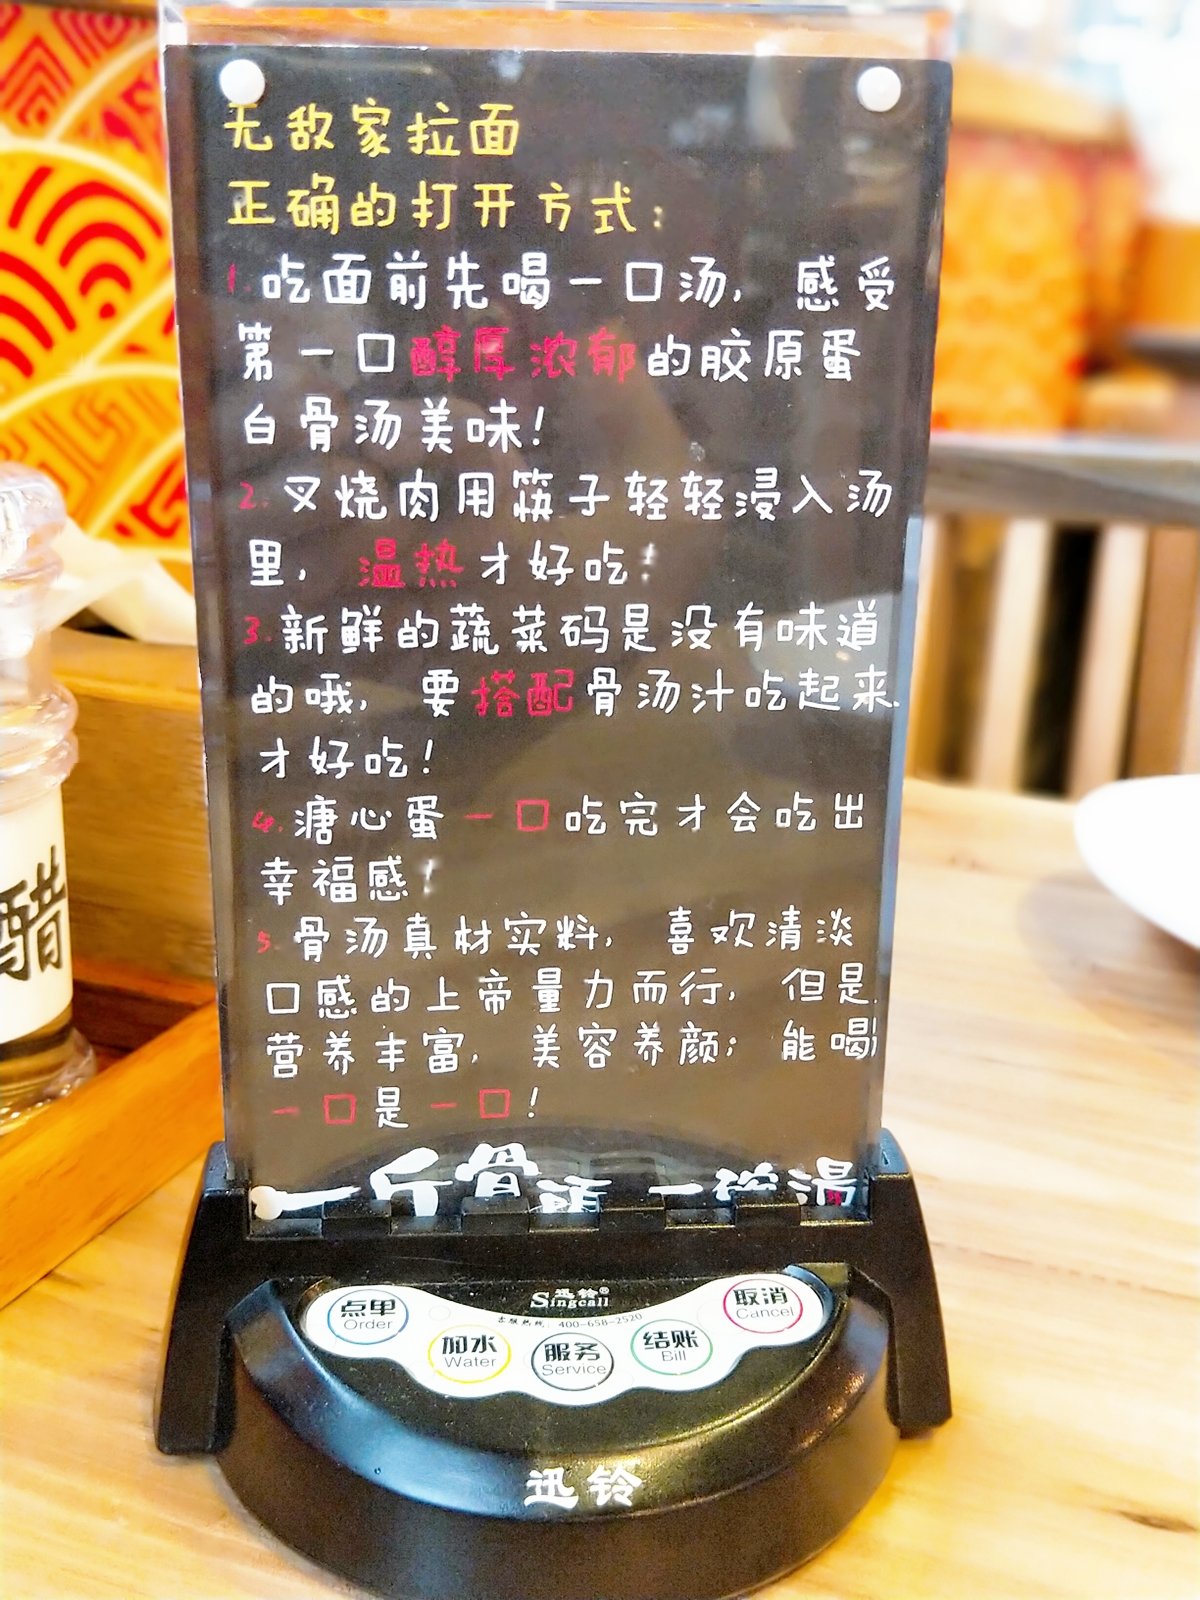 无敌家拉面
正确的打开方式:
1.吃面前先喝一口汤, 感受
第一口醇厚浓郁的胶原蛋
白骨汤美味!
2.叉烧肉用筷子轻轻浸入汤
里, 温热才好吃!
3.新鲜的蔬菜码是没有味道
的哦, 要搭配骨汤汁吃起来
才好吃!
4.溏心蛋一口吃完才会吃出
幸福感!
5.骨汤真材实料, 喜欢清淡
口感的上帝量力而行, 但是
营养丰富, 美容养颜; 能喝
一口是一口!
一斤骨 一碗湯
迅铃®
Singcall
点单
Order
加水
Water
服务
Service
结账
Bill
取消
Cancel
400-658-2520
迅铃
醋